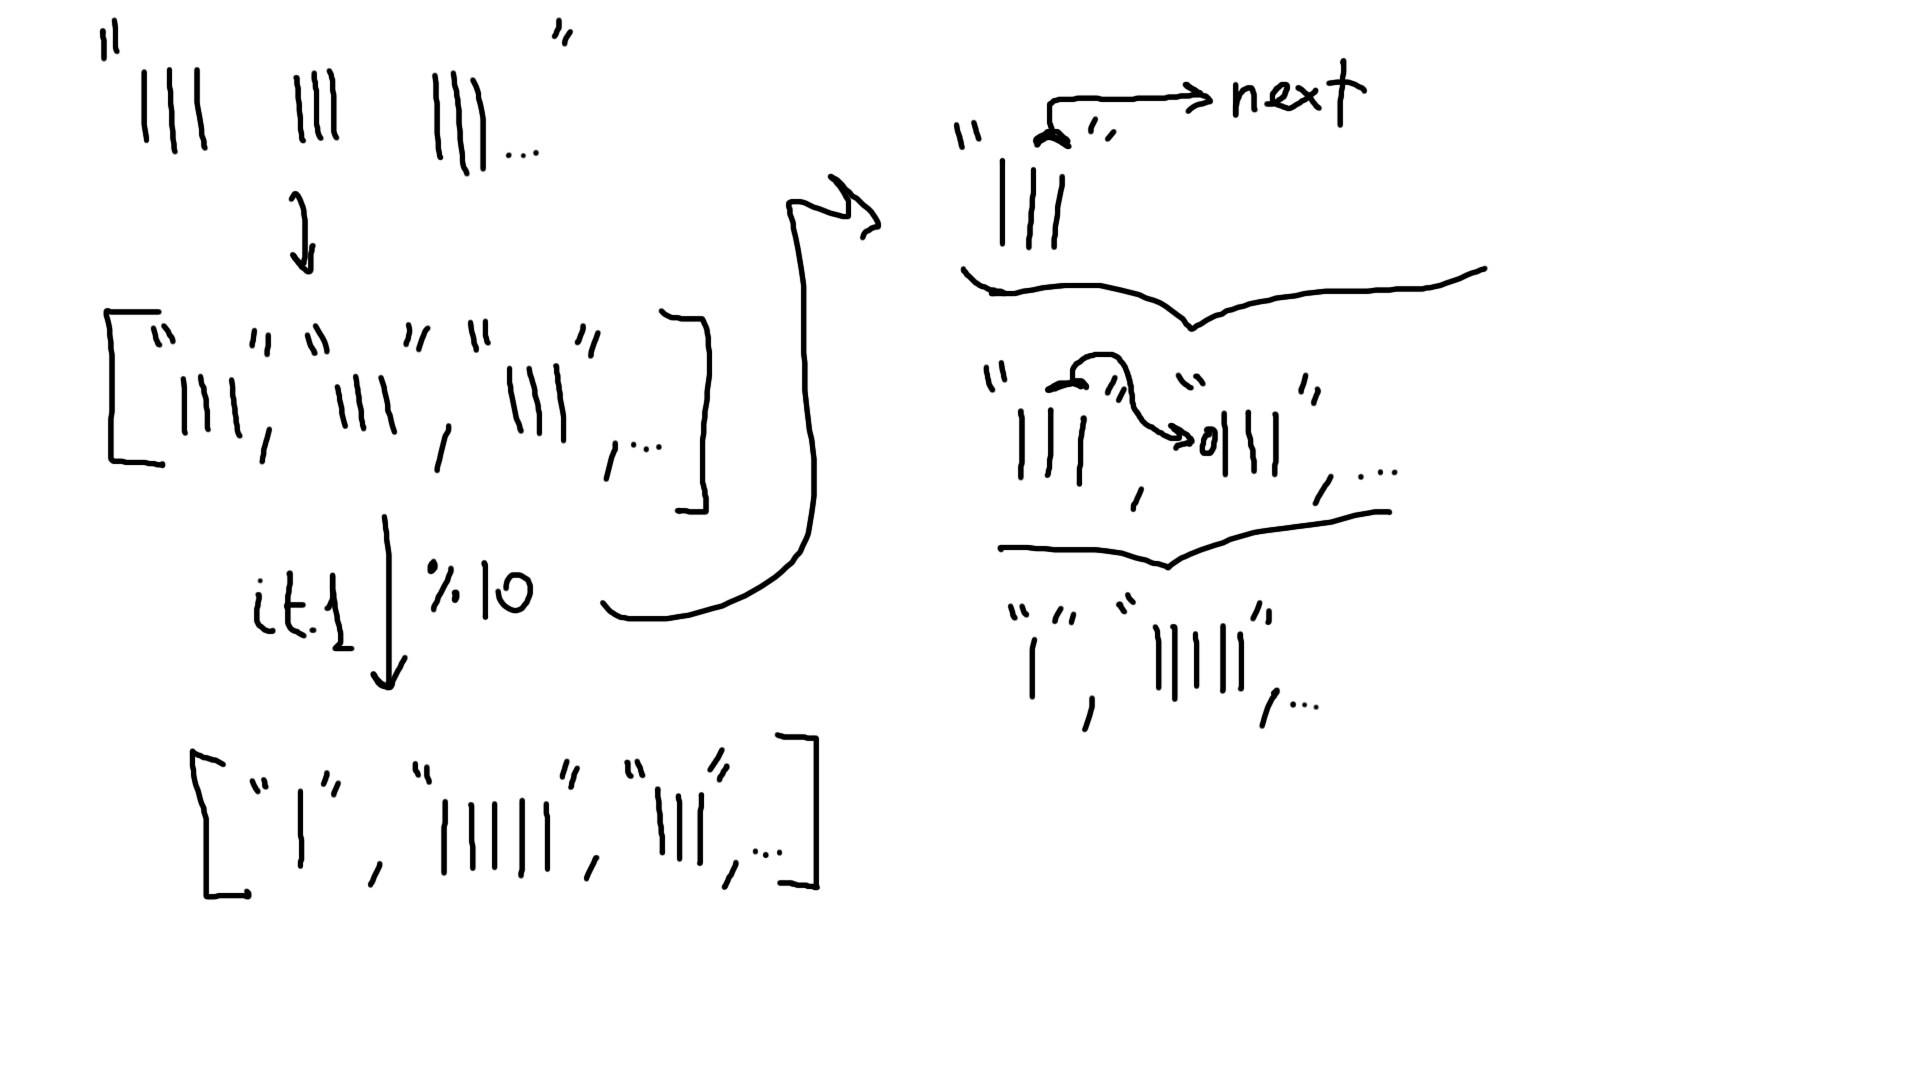 " ||| ||| ||| ... "
[ "|||", "|||", "|||", ... ]
it.1 %10
[ "|", "|||||", "|||", ... ]
"|||" next
"|||", "0|||", ...
"|", "|||||", ...